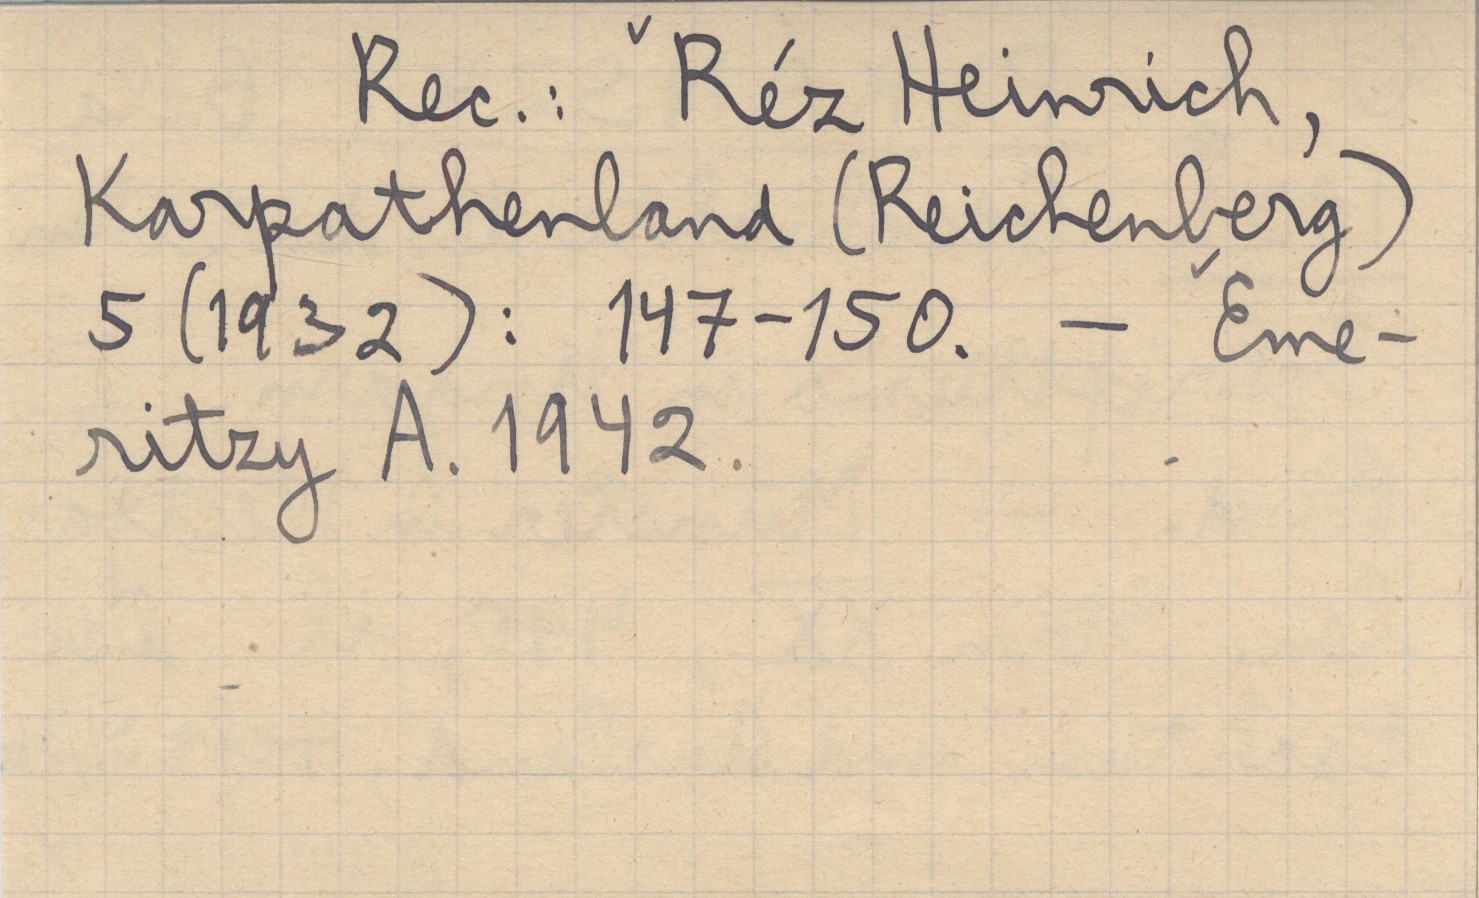 Rec.: ˇ Réz Heinrich,
Karpathenland (Reichenberg)
5 (1932): 147-150. — ˇ Eme-
ritzy A. 1942.